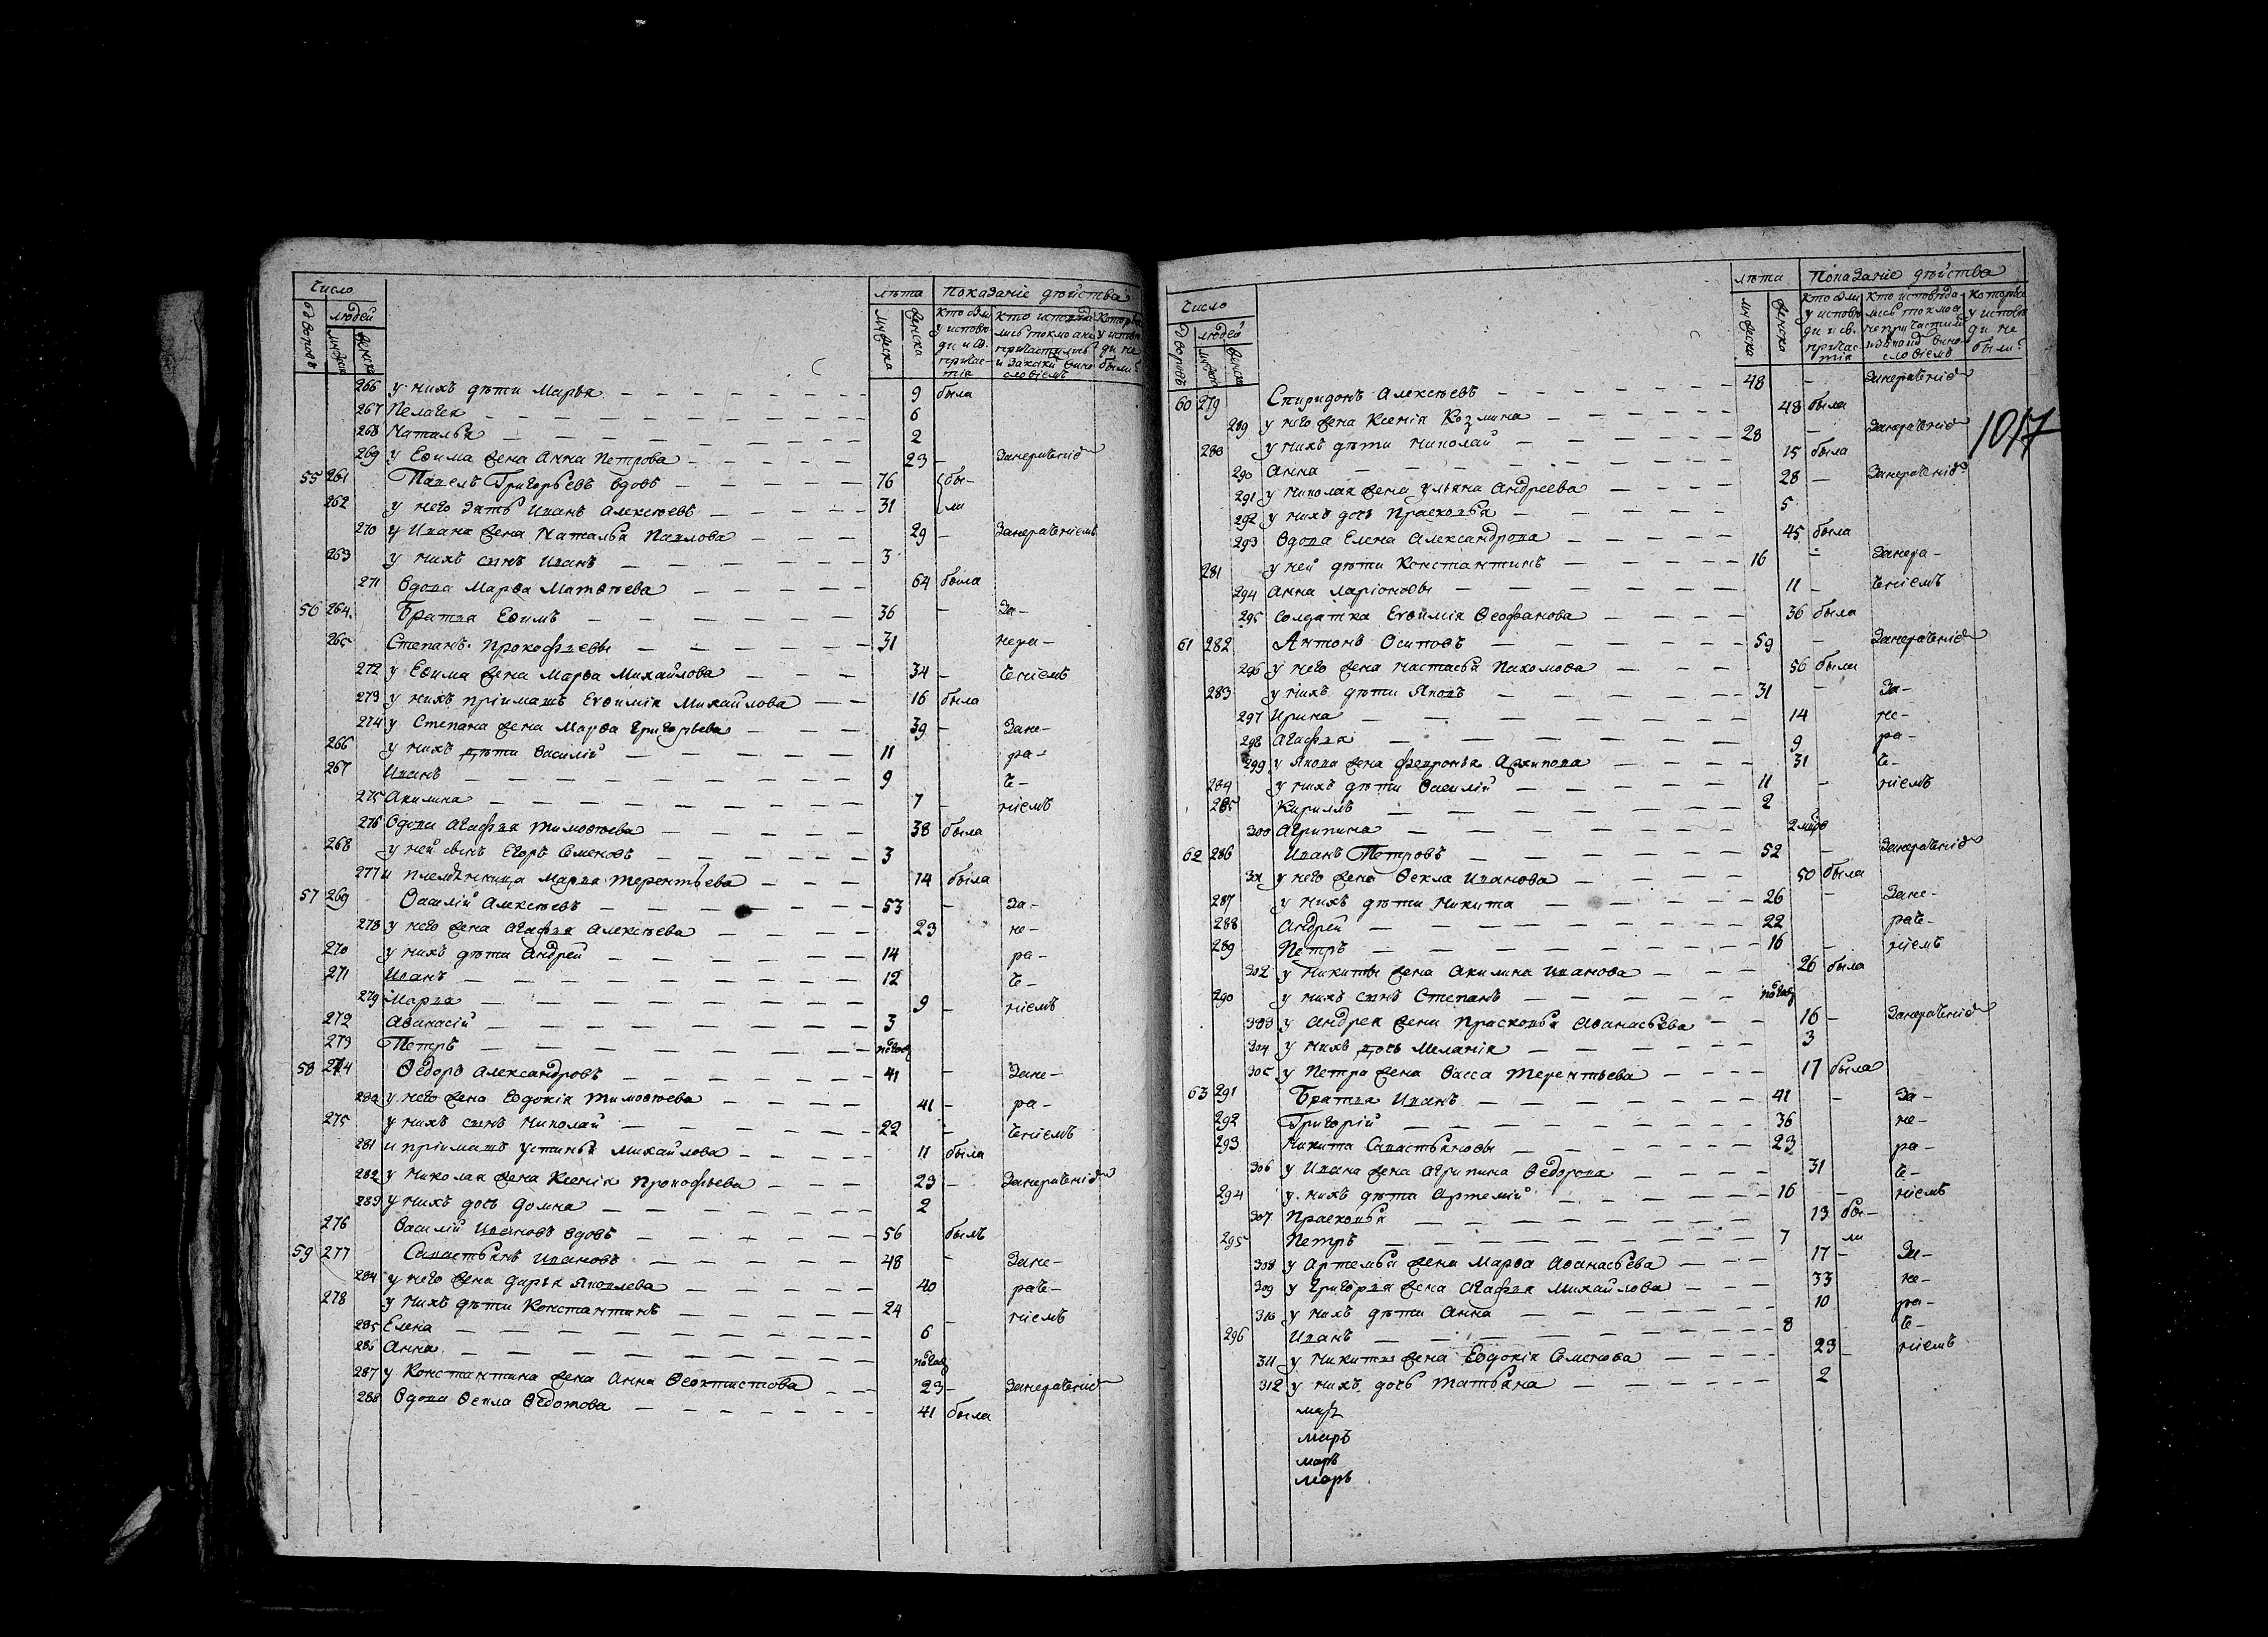 Число
лѣта Показаніе дѣйства
дворовъ людей
мужеска женска
кто были у исповѣди и св. причастія
кто исповѣдались токмо а не причастились и за каки винословіемъ
которые у исповѣди не были
266 у нихъ дѣти Марья 9 была
267 Пелагея 6
268 Наталья 2
269 у Еѳима жена Анна Петрова 23 - Занераченіе
55 261 Павелъ Григорьевъ вдовъ 76 бы-
262 у него зять Иванъ Алексѣевъ 31 ли
270 у Ивана жена Наталья Павлова 29 - Занераченіемъ
263 у нихъ сынъ Иванъ 3
271 Вдова Марѳа Матѳѣева 64 была
56 264 Братья Еѳимъ 36 - За-
265 Степанъ Прокофьевы 31 нера-
272 у Еѳима жена Марѳа Михайлова 34 - ченіемъ
273 у нихъ пріимашъ Евѳимія Михайлова 16 была
274 у Степана жена Марѳа Григорьева 39 - Зане-
266 у нихъ дѣти Василій 11 ра-
267 Иванъ 9 че-
275 Акилина 7 - ніемъ
276 Вдова Агафья Тимоѳѣева 38 была
268 у ней сынъ Егоръ Семеновъ 3
277 и племѣнница Марья Терентьева 14 была
57 269 Василій Алексѣевъ 53 - За-
278 у него жена Агафья Алексѣева 23 не-
270 у нихъ дѣти Андрей 14 ра-
271 Иванъ 12 че-
279 Марья 9 - ніемъ
272 Аѳанасій 3
273 Петръ полгод
58 274 Ѳедоръ Александровъ 41 - Зане-
280 у него жена Евдокія Тимоѳѣева 41 - ра-
275 у нихъ сынъ Николай 22 - ченіемъ
281 и пріимашъ Устинья Михайлова 11 была
282 у Николая жена Ксенія Прокофьева 23 - Занераченіе
283 у нихъ дочь Домна 2
276 Василій Ивановъ вдовъ 56 былъ
59 277 Савастьянъ Ивановъ 48 - Зане-
284 у него жена Дарья Яковлева 40 раче-
278 у нихъ дѣти Константинъ 24 - ніемъ
285 Елена 6
286 Анна полгод
287 у Константина жена Анна Ѳеоктистова 23 - Занераченіе
288 Вдова Ѳекла Ѳедотова 41 была
Число
лѣта Показаніе дѣйства
дворовъ людей
мужеска женска
кто были у исповѣди и св. причастія
кто исповѣдались токмо а непричастились и зачемъ вино словіемъ
которые у исповѣди не были
1017
60 279 Спиридонъ Алексѣевъ 48 - Занераченіе
289 у него жена Ксенія Козмина 48 была
280 у нихъ дѣти Николай 28 - Занераченіе
290 Анна 15 была
291 у Николая жена Ульяна Андреева 28 - Занераченіе
292 у нихъ дочь Прасковья 5
293 Вдова Елена Александрова 45 была
281 у ней дѣти Константинъ 16 - Занера-
294 Анна Ларіоновы 11 - ченіемъ
295 Солдатка Евѳимія Ѳеофанова 36 была
61 282 Антонъ Осиповъ 59 - Занераченіе
296 у него жена Настасья Пахомова 56 была
283 у нихъ дѣти Яковъ 31 - За-
297 Ирина 14 не-
298 Агафья 9 ра-
299 у Якова жена Февронья Архипова 31 че-
284 у нихъ дѣти Василій 11 - ніемъ
285 Кирилъ 2
300 Агрипина 2
62 286 Иванъ Петровъ 52 - Занераченіе
301 у него жена Ѳекла Иванова 50 была
287 у нихъ дѣти Никита 26 - Зане-
288 Андрей 22 раче-
289 Петръ 16 - ніемъ
302 у Никиты жена Акилина Иванова 26 была
290 у нихъ сынъ Степанъ полгод
303 у Андрея жена Прасковья Аѳанасьева 16 - Занераченіе
304 у нихъ дочь Меланія 3
305 у Петра жена Васса Терентьева 17 была
63 291 Братья Иванъ 41 - За-
292 Григорій 36 не-
293 Никита Савастьяновы 23 ра-
306 у Ивана жена Агрипина Ѳедорова 31 че-
294 у нихъ дѣти Артемій 16 - ніемъ
307 Прасковья 13 бы-
295 Петръ 7 ли
308 у Артемья жена Марѳа Аѳанасьева 17 - За-
309 у Григорья жена Агафья Михайлова 33 не-
310 у нихъ дѣти Анна 10 ра-
296 Иванъ 8 че-
311 у Никиты жена Евдокія Семенова 23 - ніемъ
312 у нихъ дочь Татьяна 2
мар
маръ
маръ
маръ